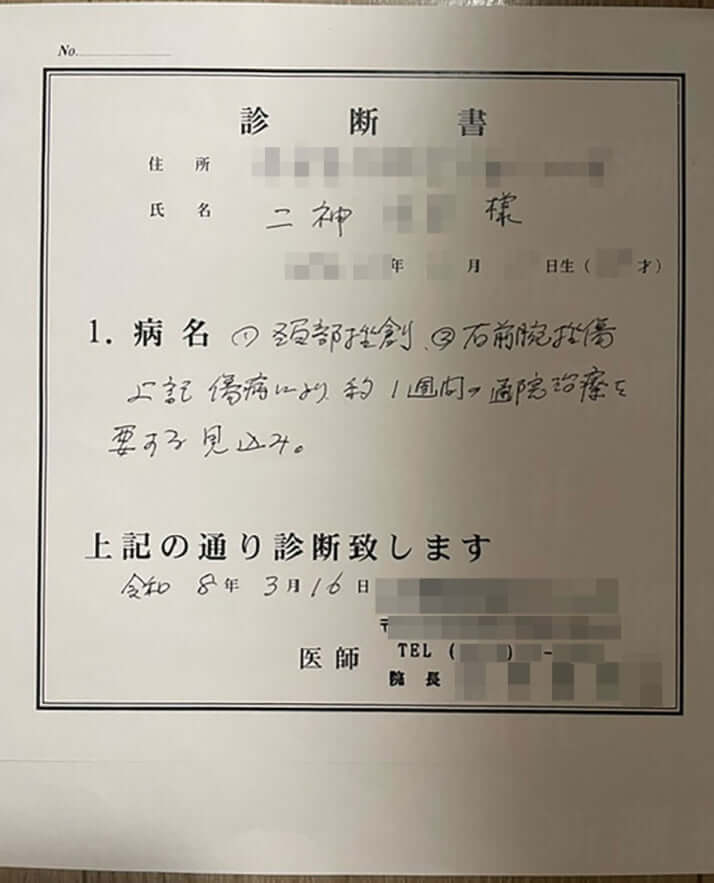 No.
診断書
住所
氏名 二神 様
年 月 日生( 才)
1. 病名 ①頚部挫創、②右前腕挫傷
上記傷病により、約1週間の通院治療を
要する見込み。
上記の通り診断致します
令和8年3月16日
〒
TEL ( ) -
医師
院長